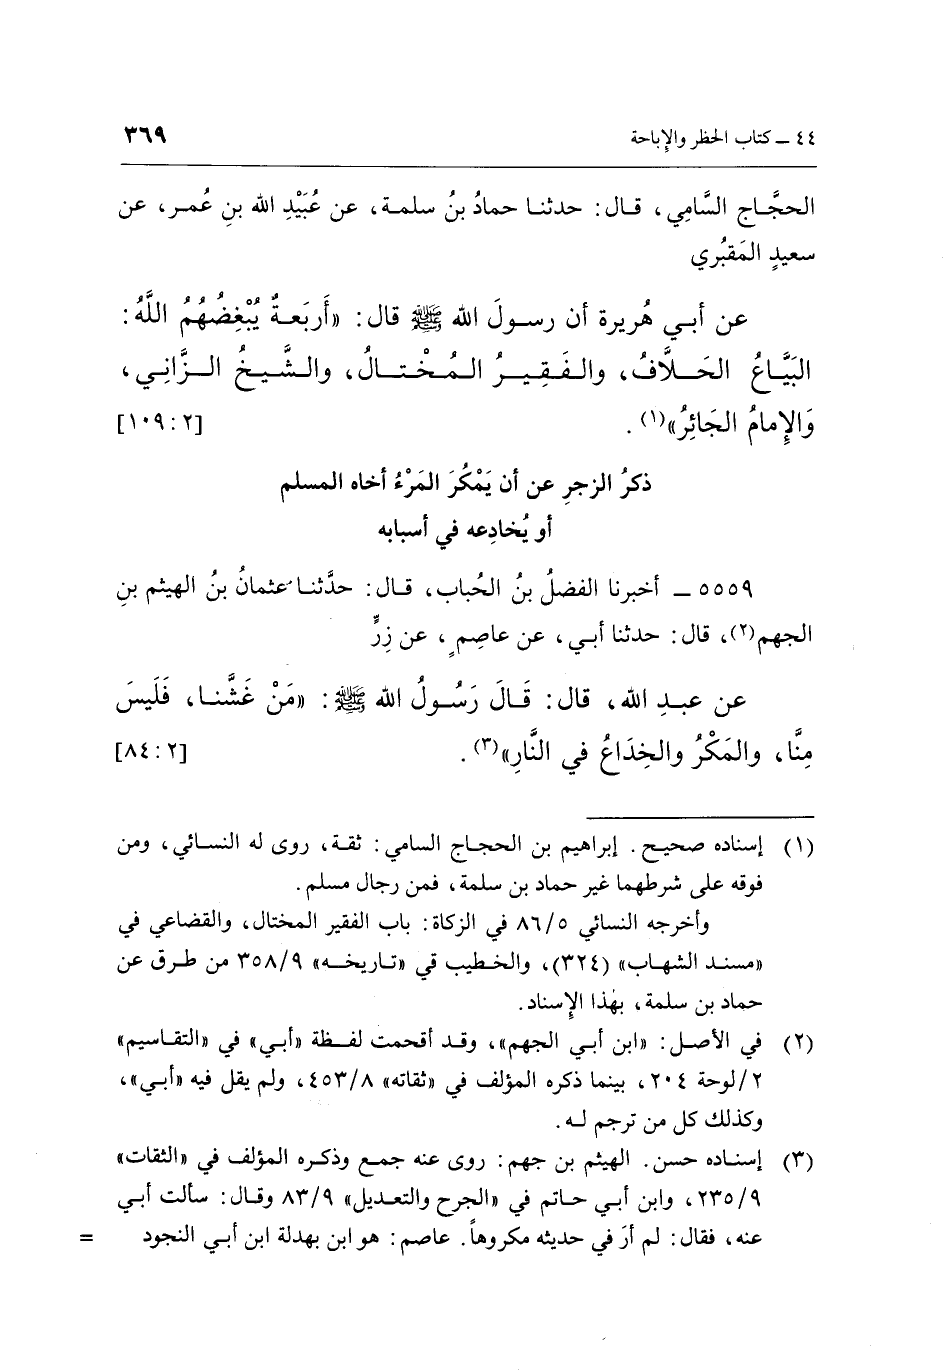 ٤٤ ــ كتاب الحظر والإباحة ٣٦٩
الحجَّاج السَّامِي، قال: حدثنا حمادُ بنُ سلمة، عن عُبَيْدِ الله بنِ عُمر، عن
سعيدٍ المَقبُري
عن أبي هُريرة أن رسولَ الله ﷺ قال: «أَربَعةٌ يُبْغِضُهُمُ اللَّهُ:
البَيَّاعُ الحَلَّافُ، والفَقِيرُ المُخْتالُ، والشَّيخُ الزَّانِي،
وَالإِمامُ الجَائِرُ»(١). [٢: ١٠٩]
ذكرُ الزجرِ عن أن يَمْكُرَ المَرْءُ أخاه المسلم
أو يُخادِعه في أسبابه
٥٥٥٩ ــ أخبرنا الفضلُ بنُ الحُباب، قال: حدَّثنا عثمانُ بنُ الهيثم بنِ
الجهم(٢)، قال: حدثنا أبي، عن عاصِمٍ، عن زِرٍّ
عن عبدِ الله، قال: قَالَ رَسُولُ الله ﷺ: «مَنْ غَشَّنا، فَلَيسَ
مِنَّا، والمَكْرُ والخِدَاعُ في النَّارِ»(٣). [٢: ٨٤]
(١) إسناده صحيح. إبراهيم بن الحجاج السامي: ثقة، روى له النسائي، ومن
فوقه على شرطهما غير حماد بن سلمة، فمن رجال مسلم.
وأخرجه النسائي ٨٦/٥ في الزكاة: باب الفقير المختال، والقضاعي في
«مسند الشهاب» (٣٢٤)، والخطيب في «تاريخه» ٣٥٨/٩ من طرق عن
حماد بن سلمة، بهٰذا الإِسناد.
(٢) في الأصل: «ابن أبي الجهم»، وقد أقحمت لفظة «أبي» في «التقاسيم»
٢/لوحة ٢٠٤، بينما ذكره المؤلف في «ثقاته» ٤٥٣/٨، ولم يقل فيه «أبي»،
وكذلك كل من ترجم له.
(٣) إسناده حسن. الهيثم بن جهم: روى عنه جمع وذكره المؤلف في «الثقات»
٢٣٥/٩، وابن أبي حاتم في «الجرح والتعديل» ٨٣/٩ وقال: سألت أبي
عنه، فقال: لم أرَ في حديثه مكروهاً. عاصم: هو ابن بهدلة ابن أبي النجود =